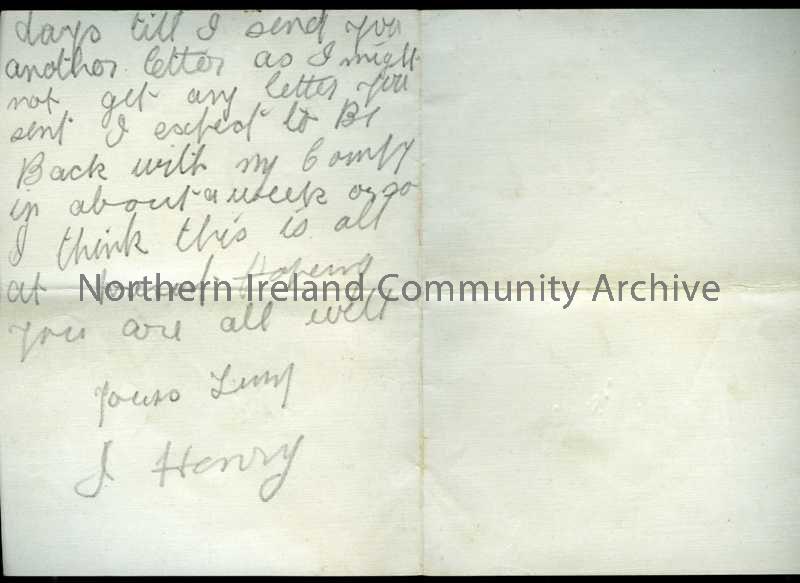 days till I send you
another letter as I might
not get any letter you
sent I expect to Be
Back with my Compy
in about a week or so
I think this is all
at Hoping
Northern Ireland Community Archive
you are all well
yours
J Henry